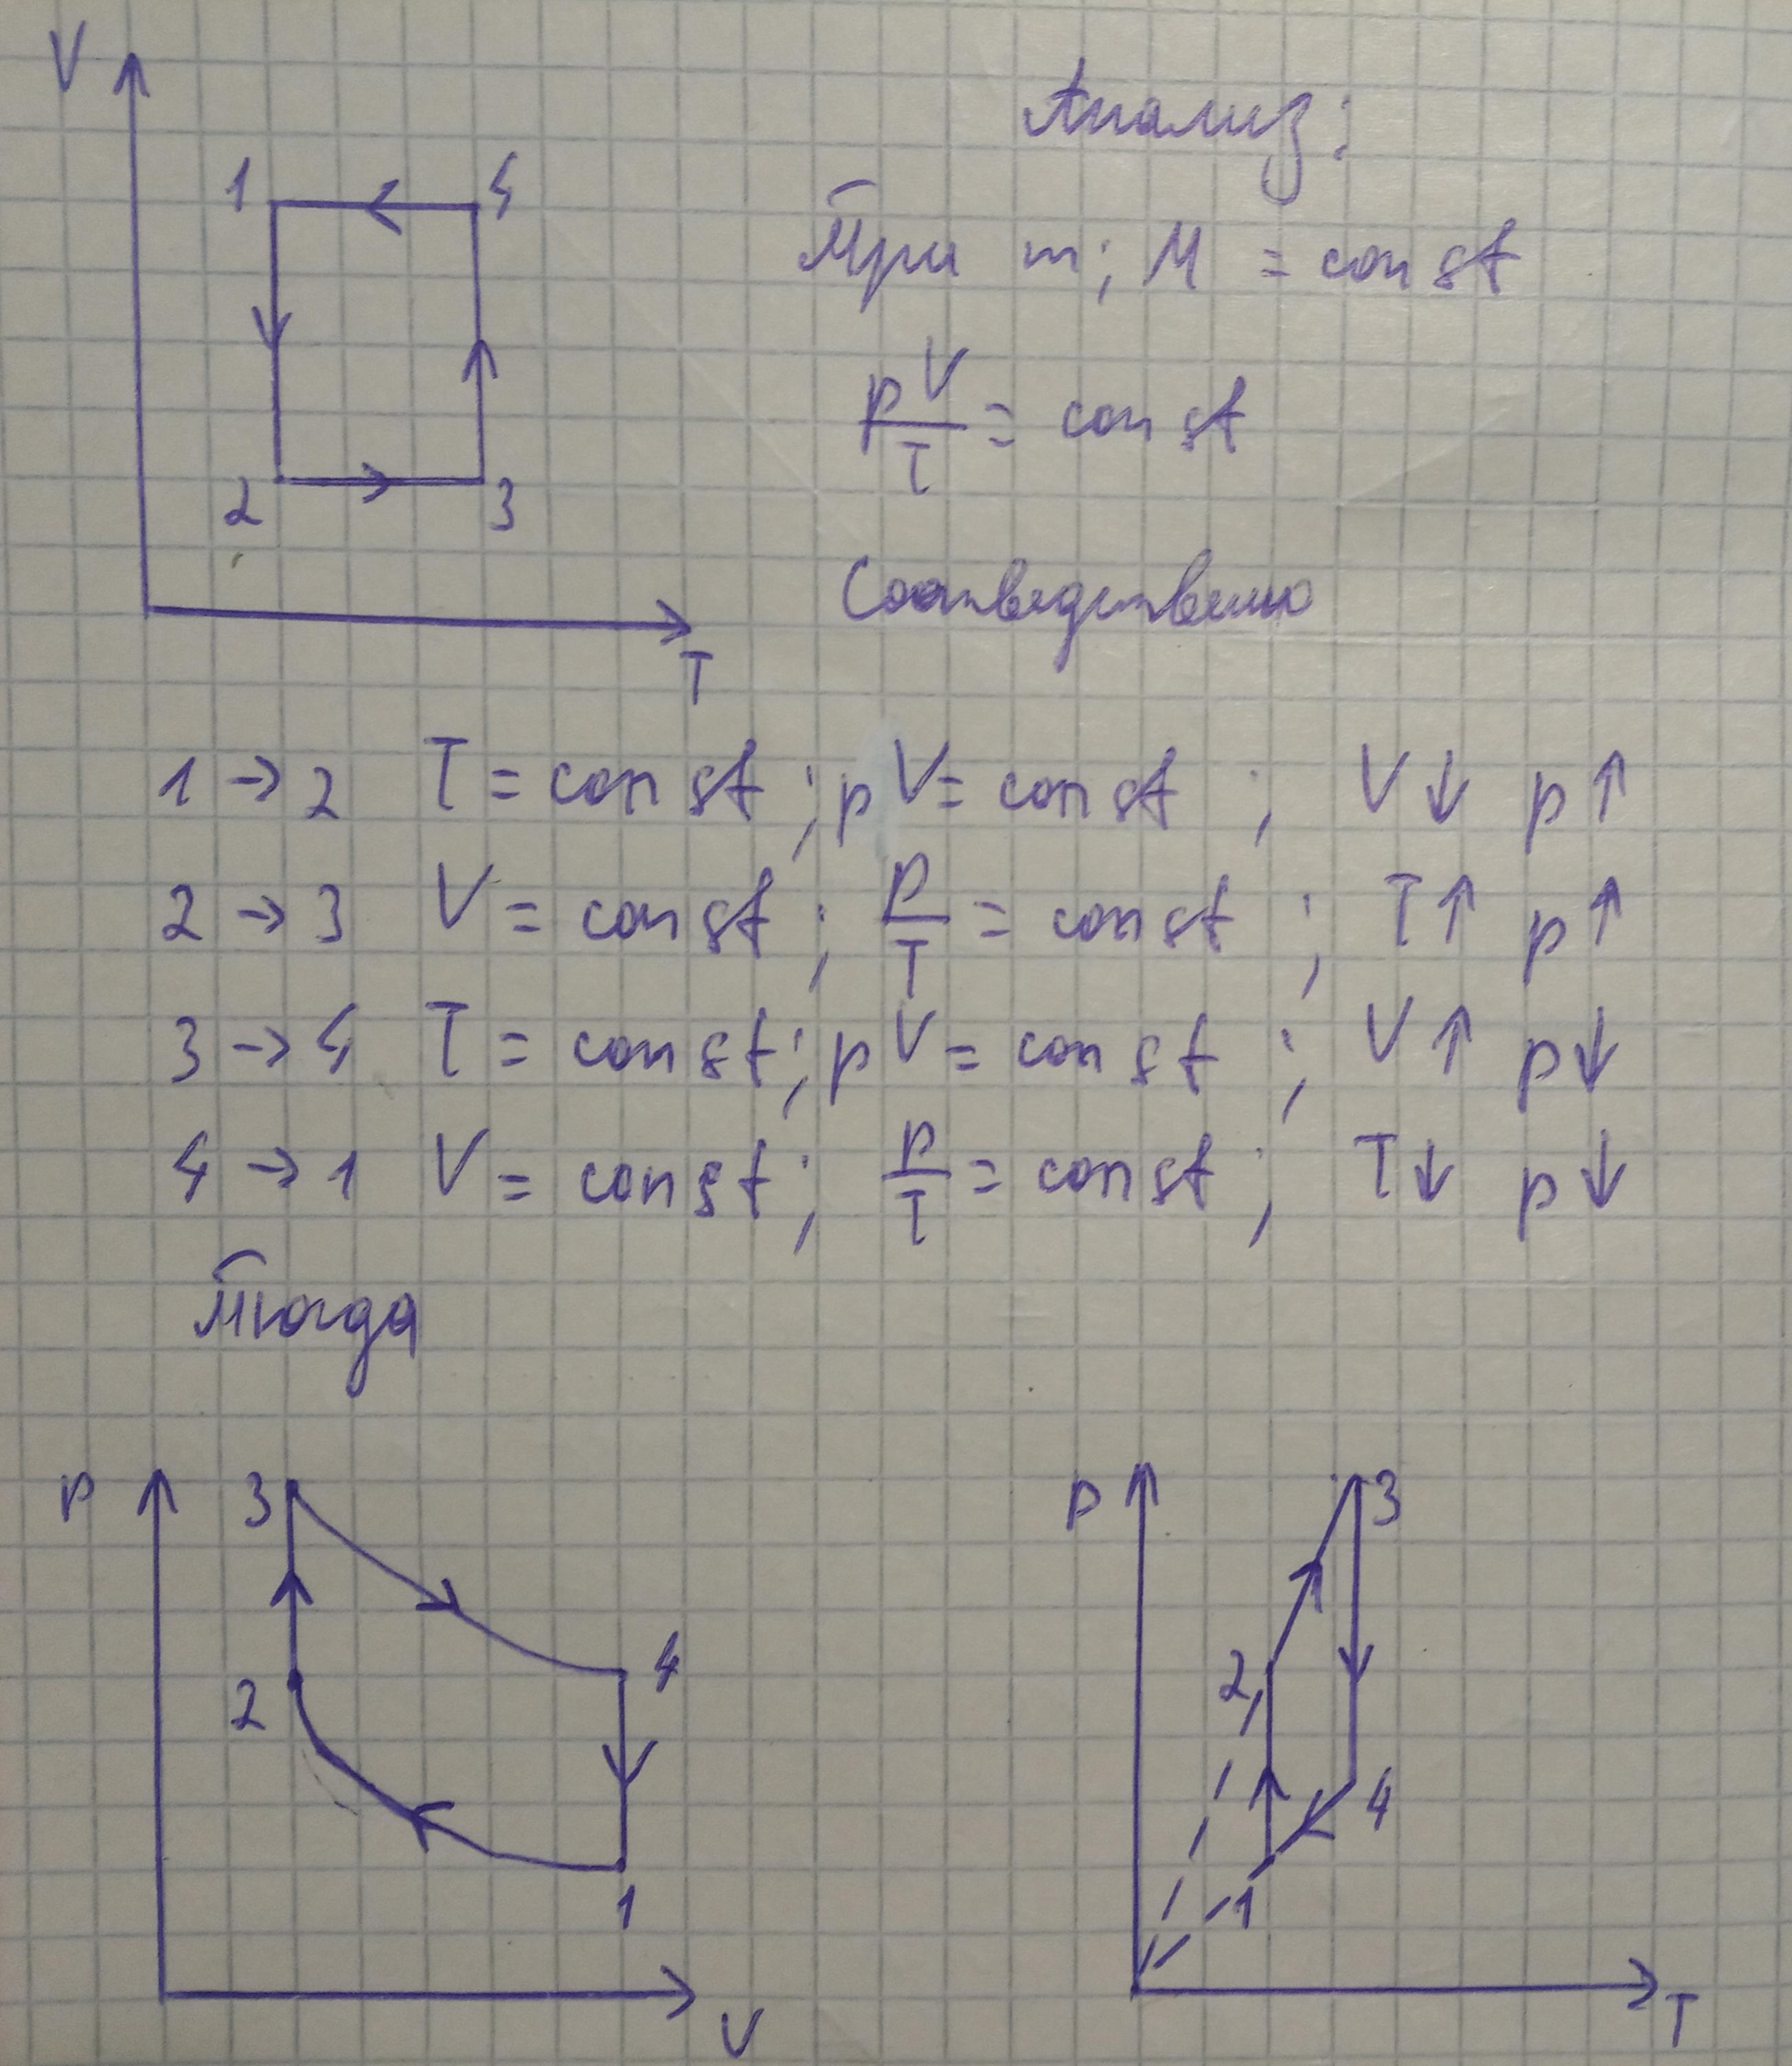 V
Анализ:
1 4
При m; M = const
pV/T = const
2 3
Соответственно
T
1 → 2 T = const; pV = const; V↓ p↑
2 → 3 V = const; p/T = const; T↑ p↑
3 → 4 T = const; pV = const; V↑ p↓
4 → 1 V = const; p/T = const; T↓ p↓
Тогда
P 3
4
2
1
V
P 3
2
4
1
T